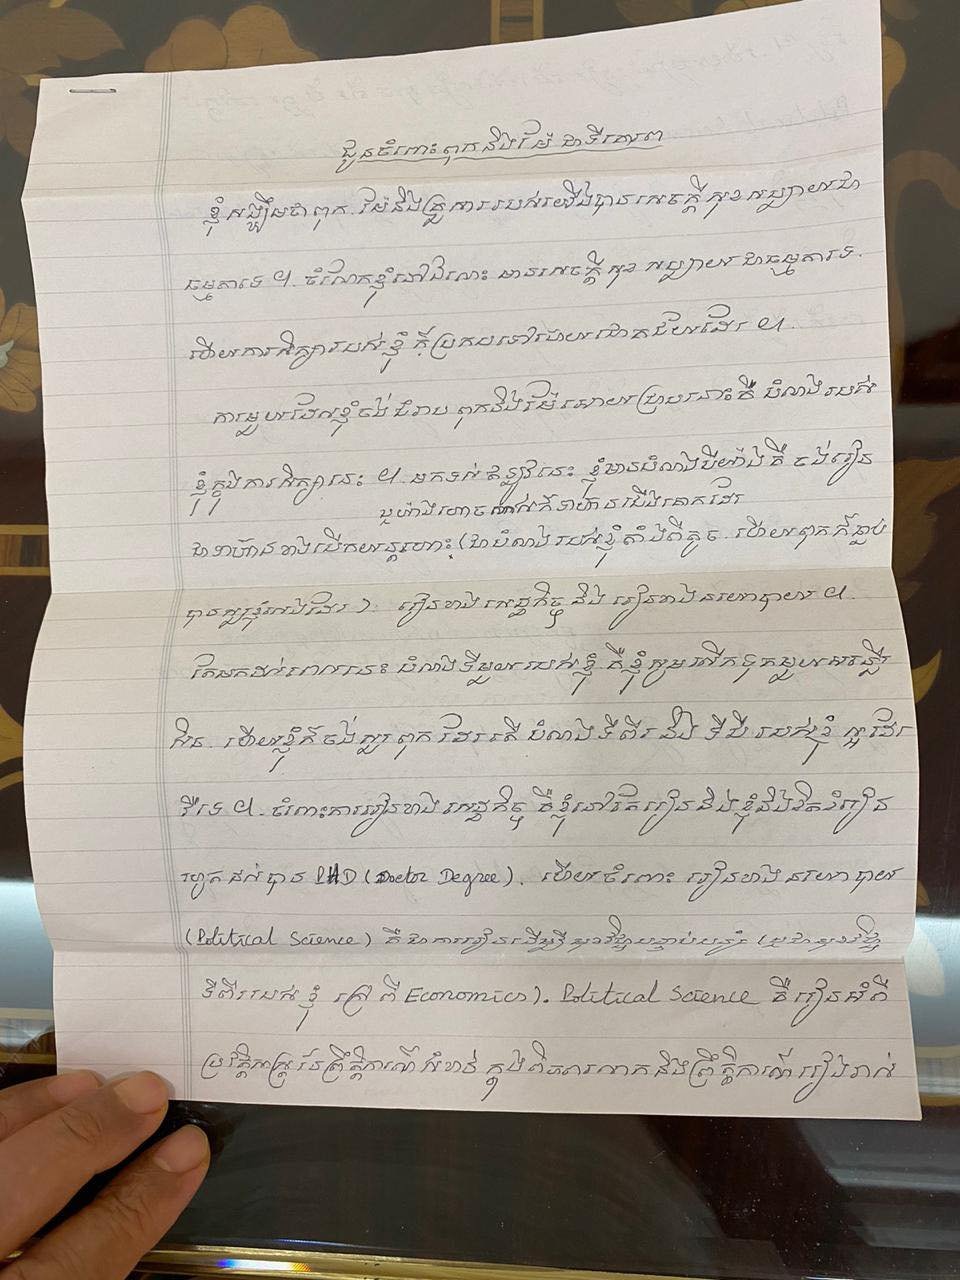 ជូនចំពោះពុកនិងម៉ែ ជាទីគោរព
ខ្ញុំសង្ឃឹមថា ពុក ម៉ែនិងគ្រួសាររបស់យើងបានសេចក្ដីសុខសប្បាយជា
ធម្មតាទេ ។ ចំណែកខ្ញុំនៅឯណេះ មានសេចក្ដីសុខសប្បាយជាធម្មតាទេ
ហើយការសិក្សារបស់ខ្ញុំក៏ប្រកបទៅដោយជោគជ័យដែរ ។
ការមួយដែលខ្ញុំចង់ជំរាបពុកនិងម៉ែអោយជ្រាបនោះគឺ បំណងរបស់
ខ្ញុំក្នុងការសិក្សានេះ ។ មកទល់ឥឡូវនេះ ខ្ញុំមានបំណងបីយ៉ាងគឺ ចង់រៀន
ឬយ៉ាងហោចណាស់ក៏ទាហានជើងគោកដែរ
ជាទាហានខាងបើកយន្តហោះ (ជាបំណងរបស់ខ្ញុំតាំងពីតូច ហើយពុកក៏ធ្លាប់
បានសួរខ្ញុំម្ដងដែរ) រៀនខាងសេដ្ឋកិច្ច និង រៀនខាងនយោបាយ ។
តែមកដល់ពេលនេះ បំណងទីមួយរបស់ខ្ញុំ គឺខ្ញុំសូមលើកទុកមួយអន្លើ
សិន ហើយខ្ញុំក៏ចង់សួរពុកដែរតើ បំណងទីពីរនិងទីបីរបស់ខ្ញុំល្អដែរ
រឺទេ ។ ចំពោះការរៀនខាងសេដ្ឋកិច្ច គឺខ្ញុំនៅតែរៀននិងខ្ញុំនិងខិតខំរៀន
រហូតដល់បាន PHD (Doctor Degree). ហើយចំពោះរៀនខាងនយោបាយ
(Political Science) គឺជាការរៀនដើម្បី
ទីពីររបស់ខ្ញុំ ក្រៅពី Economics). Political Science គឺរៀនអំពី
ប្រវត្តិសាស្ត្រនៃព្រឹត្តិការណ៍សំខាន់ ក្នុងពិភពលោកនិងព្រឹត្តិការណ៍រៀងរាល់